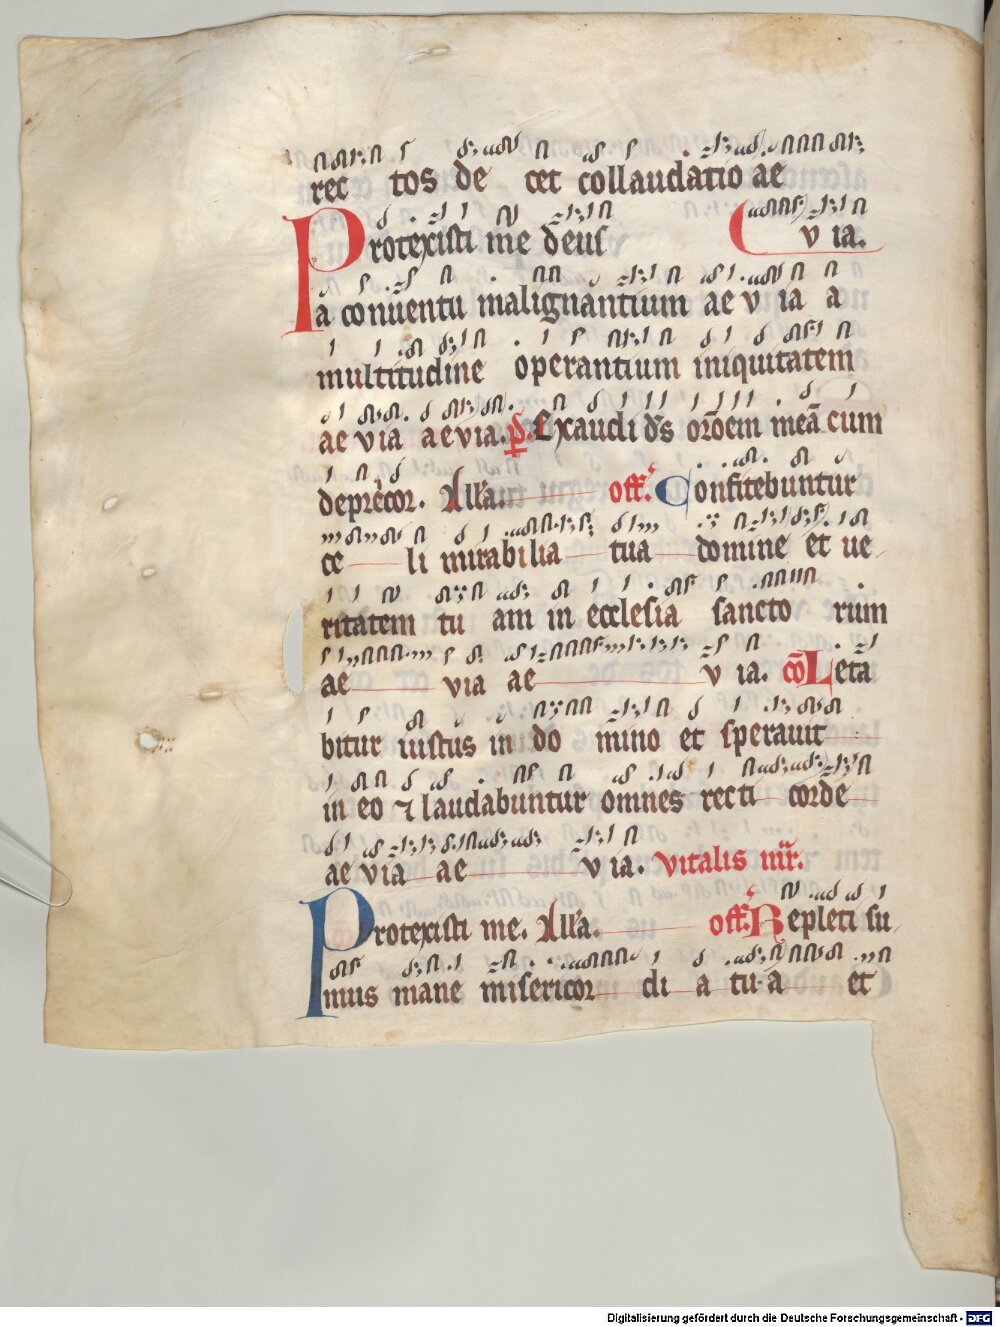 rec tos de cet collaudatio ae
Protexisti me deus v ia.
a conuentu malignantium ae v ia a
multitudine operantium iniquitatem
ae via aevia. ps. Exaudi ds̄ orōem meā cum
deprecor. All'a. off. Confitebuntur
ce li mirabilia tua domine et ue
ritatem tu am in ecclesia sancto rum
ae via ae v ia. cō Leta
bitur iustus in do mino et sperauit
in eo ⁊ laudabuntur omnes recti corde
ae via ae v ia. vitalis mr̄.
Protexisti me. All'a. off. Repleti su
mus mane misericor di a tu a et
Digitalisierung gefördert durch die Deutsche Forschungsgemeinschaft - DFG